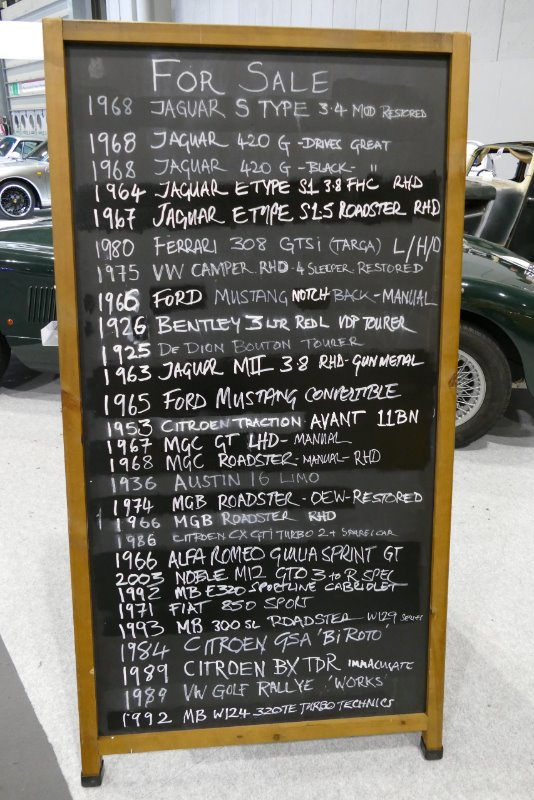 FOR SALE
1968 JAGUAR S TYPE 3.4 MOD RESTORED
1968 JAGUAR 420 G - DRIVES GREAT
1968 JAGUAR 420 G - BLACK - "
1964 JAGUAR E TYPE S1 3.8 FHC RHD
1967 JAGUAR E TYPE S1.5 ROADSTER RHD
1980 FERRARI 308 GTSi (TARGA) L/H/D
1975 VW CAMPER RHD - 4 SLEEPER - RESTORED
1965 FORD MUSTANG NOTCH BACK - MANUAL
1926 BENTLEY 3 LTR RED L VDP TOURER
1925 DE DION BOUTON TOURER
1963 JAGUAR MII 3.8 RHD - GUNMETAL
1965 FORD MUSTANG CONVERTIBLE
1953 CITROEN TRACTION AVANT 11BN
1967 MGC GT LHD - MANUAL
1968 MGC ROADSTER - MANUAL - RHD
1936 AUSTIN 16 LIMO
1974 MGB ROADSTER - OEW - RESTORED
1966 MGB ROADSTER RHD
1986 CITROEN CX GTi TURBO 2 + SPARES CAR
1966 ALFA ROMEO GIULIA SPRINT GT
2003 NOBLE M12 GTO 3 to R SPEC
1992 MB E320 SPORTLINE CABRIOLET
1971 FIAT 850 SPORT
1993 MB 300 SL ROADSTER W129 SERIES
1984 CITROEN GSA 'BiROTO'
1989 CITROEN BX TDR IMMACULATE
1989 VW GOLF RALLYE 'WORKS'
1992 MB W124 320TE TURBOTECHNICS